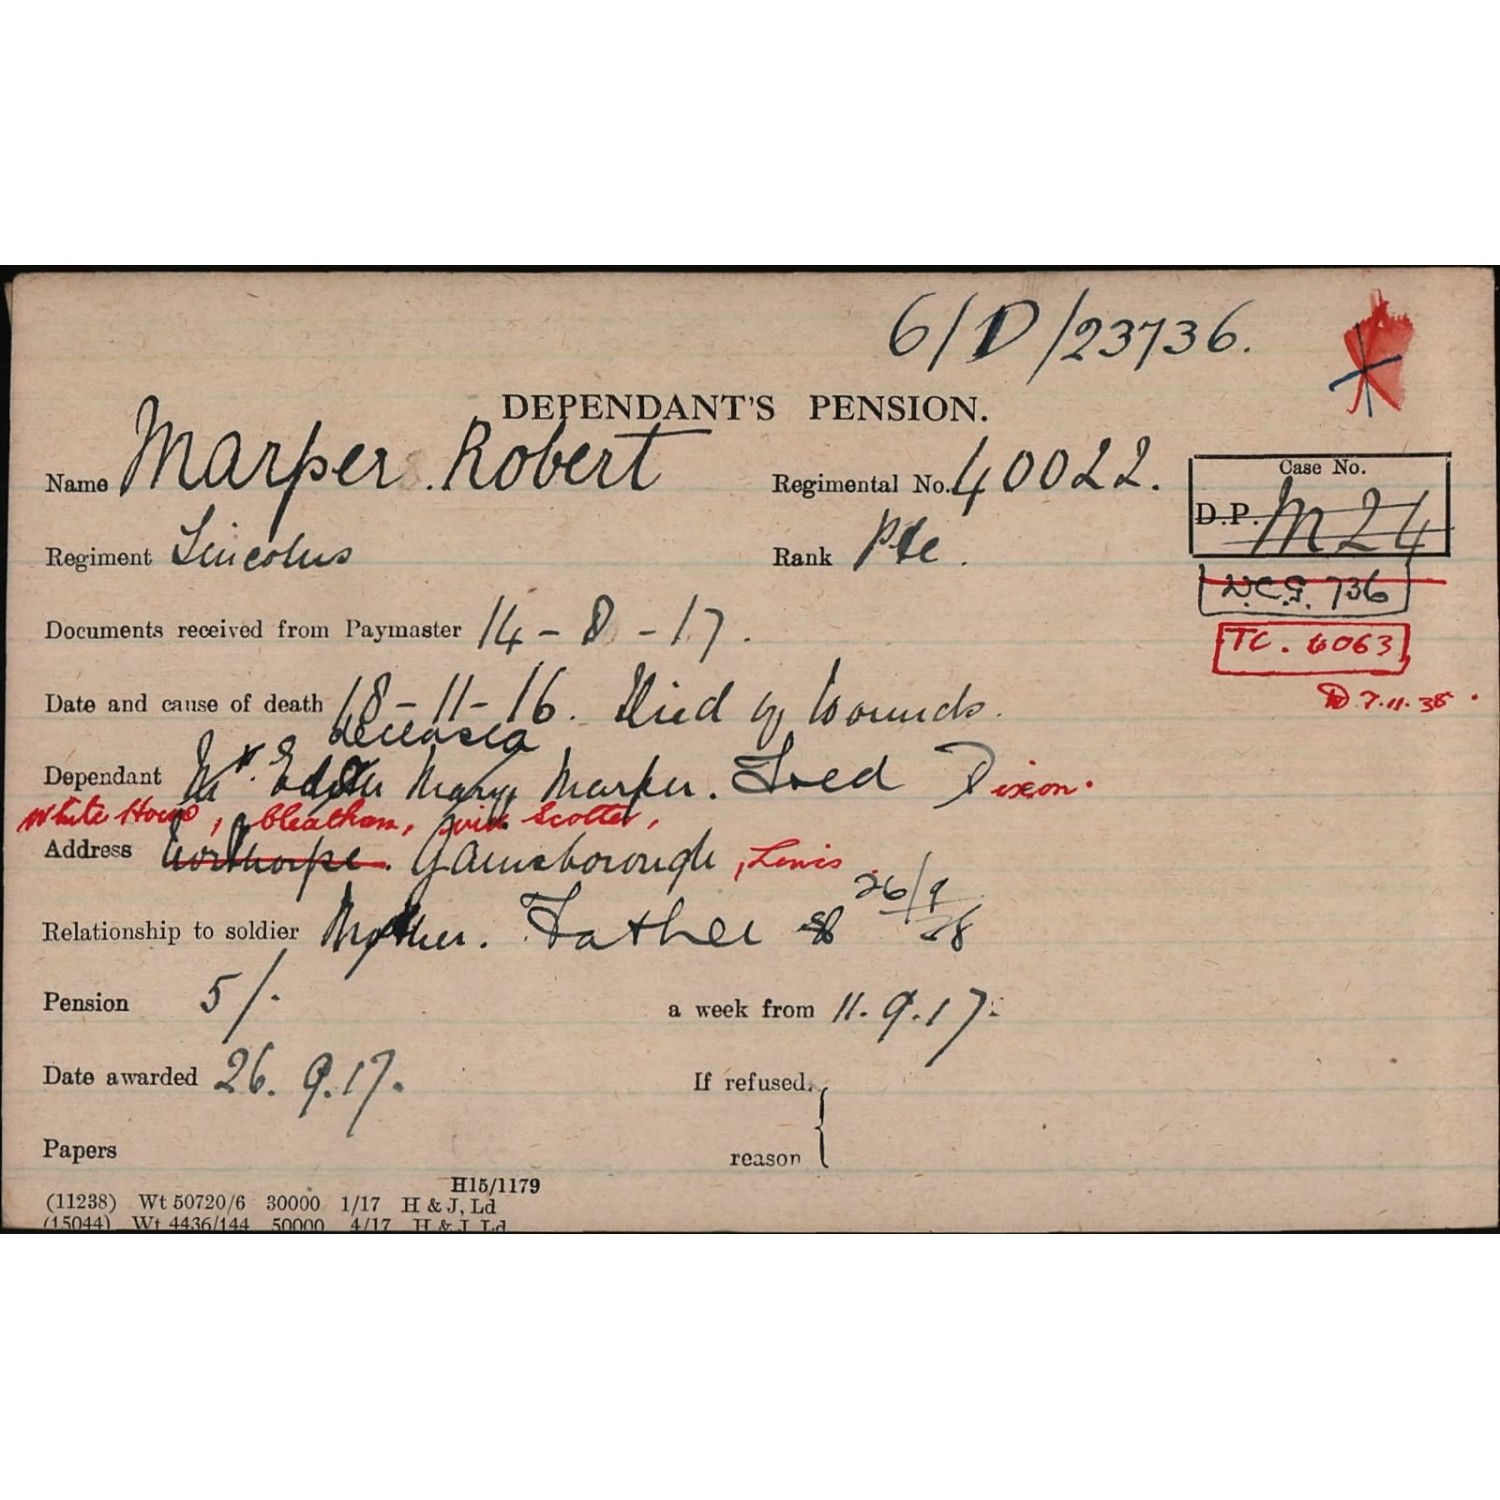 6/D/23736.
DEPENDANT'S PENSION.
Name Marper. Robert Regimental No. 40022.
Case No.
D.P. M24
Regiment Lincolns Rank Pte.
N.C.S. 736
Documents received from Paymaster 14-8-17.
TC. 6063
7.11.38.
Date and cause of death 18-11-16. Died of Wounds.
deceased
Dependant Mrs. Edith Mary Marper. Fred Dixon.
White House, Cleatham, Scotter,
Address Gainsborough, Lincs
26/9
28
Relationship to soldier Mother. Father
Pension 5/. a week from 11.9.17.
Date awarded 26.9.17. If refused,
Papers reason
H15/1179
(11238) Wt 50720/6 30000 1/17 H & J, Ld
(15044) Wt 4436/144 50000 4/17 H & J Ld